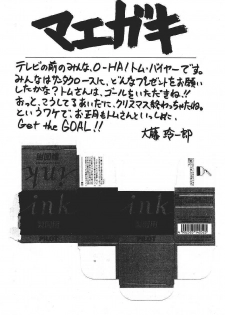 マエガキ
テレビの前のみんな、O-HA!トム・バイヤーです。
みんなはサンタクロースに、どんなプレゼントをお願い
したかな?トムさんは、ゴールをいただきね!!
おっと、こうしてるあいだに、クリスマス終わっちゃたね。
というワケで、お正月もトムさんといっしょに、
Get the GOAL!!
大藤 玲一郎
ink
ink